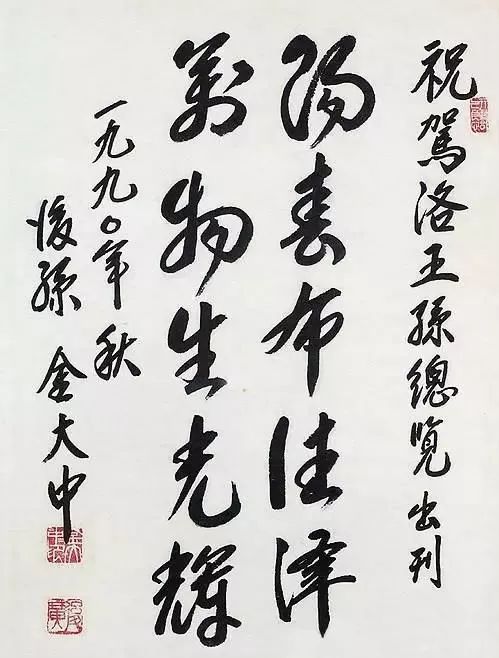 祝駕洛王孫總覽出刊
陽春布德澤
萬物生光輝
一九九〇年秋
後孫 金大中